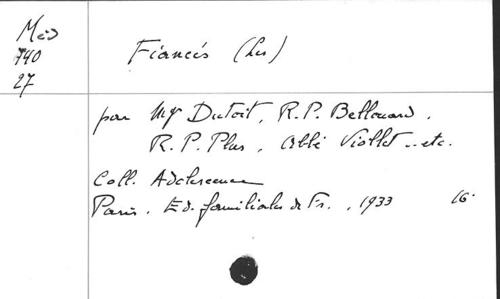 Méd
740
27
Fiancés (Les)
par Mgr Dutoit, R.P. Bellouard,
R.P. Plus, Abbé Viollet.. etc.
Coll. Adolescence
Paris. Ed. familiales de Fr., 1933 16°